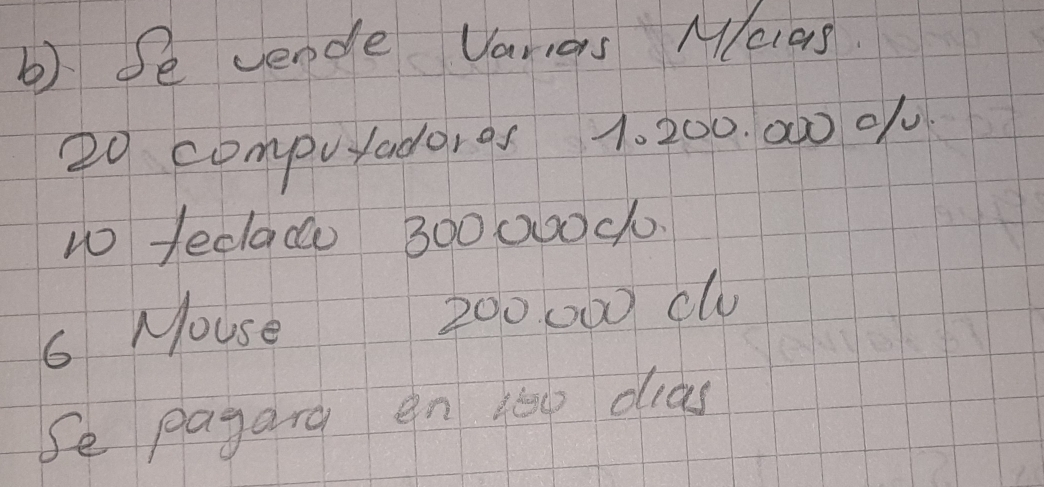 b) Se vende Varias M/cias.
20 computadores 1.200.000 c/u.
10 teclado 300000 c/u.
6 Mouse 200.000 c/u
Se pagara en dias